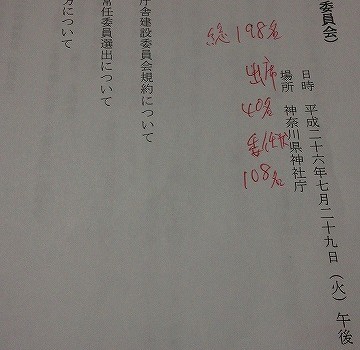 委員会）
日時　平成二十六年七月二十九日（火）午後
場所　神奈川県神社庁
総 198名
出席
40名
委任状
108名
庁舎建設委員会規約について
常任委員選出について
について